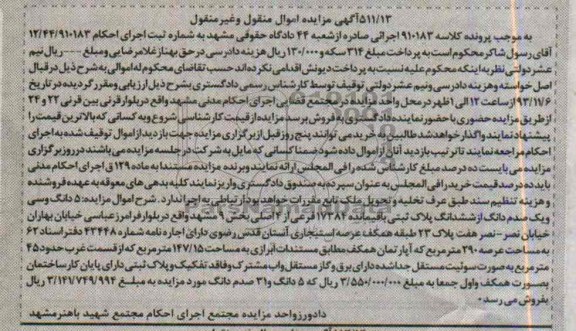 ۵۱۱/۱۳آگهی مزایده اموال منقول وغیرمنقول
به موجب پرونده کلاسه ۹۱۰۱۸۳اجرائی صادره ازشعبه ۴۴ دادگاه حقوقی مشهد به شماره ثبت اجرای احکام ۱۲/۴۴/۹۱۰۱۸۳
آقای رسول شاکر محکوم است به پرداخت مبلغ ۳۱۴ سکه و ۱۳۰/۰۰۰ریال هزینه دادرسی در حق بهناز غلامرضایی ومبلغ --- ریال نیم
عشر دولتی نظر به اینکه محکوم علیه نسبت به پرداخت دیونش اقدامی نکرده اند حسب تقاضای محکوم له اموالی به شرح ذیل در قبال
اصل خواسته وهزینه دادرسی ونیم عشر دولتی توسط کارشناس رسمی دادگستری بشرح ذیل ارزیابی ومقرر گردیده در تاریخ
۹۳/۱۱/۶از ساعت ۱۲ الی ۱ظهر در محل واحد مزایده در مجتمع قضایی اجرای احکام مدنی مشهد واقع دربلوار قرنی بین قرنی ۲۲ و ۲۴
از طریق مزایده حضوری با حضور نماینده دادگستری به فروش برسد مزایده از قیمت کارشناسی شروع وبه کسانی که بالاترین قیمت را
پیشنهاد نمایند واگذار خواهد شد طالبین به خرید می توانند پنج روز قبل از برگزاری مزایده جهت بازدید از اموال توقیف شده به اجرای
احکام مراجعه نمایند تا ترتیب بازدید آنان از اموال داده شود ضمنا کسانی که مایل به شرکت در جلسه مزایده می باشند در روز برگزاری
مزایده می بایست ده درصد مبلغ کارشناس شده رافی المجلس ارائه نمایند وبرنده مزایده مستندا به ماده ۱۲۹ ق اجرای احکام مدنی
باید ده درصد قیمت خرید رافی المجلس به عنوان سپرده به صندوق دادگستری واریز نمایند کلیه بدهی های معوقه به عهده فروشنده
و هزینه تنظیم سند طبق عرف تخلیه و تحویل ملک تابع مقررات خواهد بود ارتباطی به اجرا ندارد. شرح اموال مزایده: ۵ دانگ وسی
ویک صدم دانگ از ششدانگ پلاک ثبتی باقیمانده ۱۷۳۸۴ فرعی از ۴ اصلی بخش ۹ مشهد واقع در بلوار فرامرز عباسی خیابان بهاران
خیابان نصر- نصر هفت پلاک ۲۳ طبقه همکف عرصه استیجاری آستان قدس رضوی دارای اجاره نامه شماره ۴۳۴۴۸ دفتر اسناد ۶۲
به مساحت عرصه ۲۹۰ مترمربع که آپارتمان همکف مطابق مستندات ابرازی به مساحت ۱۴۷/۱۵ مترمربع که از قسمت غرب حدود ۴۵
متر مربع به صورت سوئیت مستقل جدا شده دارای برق و گاز مستقل واب مشترک و فاقد تفکیک و پلاک ثبتی دارای پایان کار ساختمان
بصورت همکف واول جمعا به مبلغ ۳/۵۵۰/۰۰۰/۰۰۰ ریال که ۵ دانگ و۳۱ صدم دانگ مورد مزایده به مبلغ ۳/۱۴۱/۷۴۹/۹۹۲ ریال
بفروش می رسد.
دادورز واحد مزایده مجتمع اجرای احکام مجتمع شهید باهنر مشهد